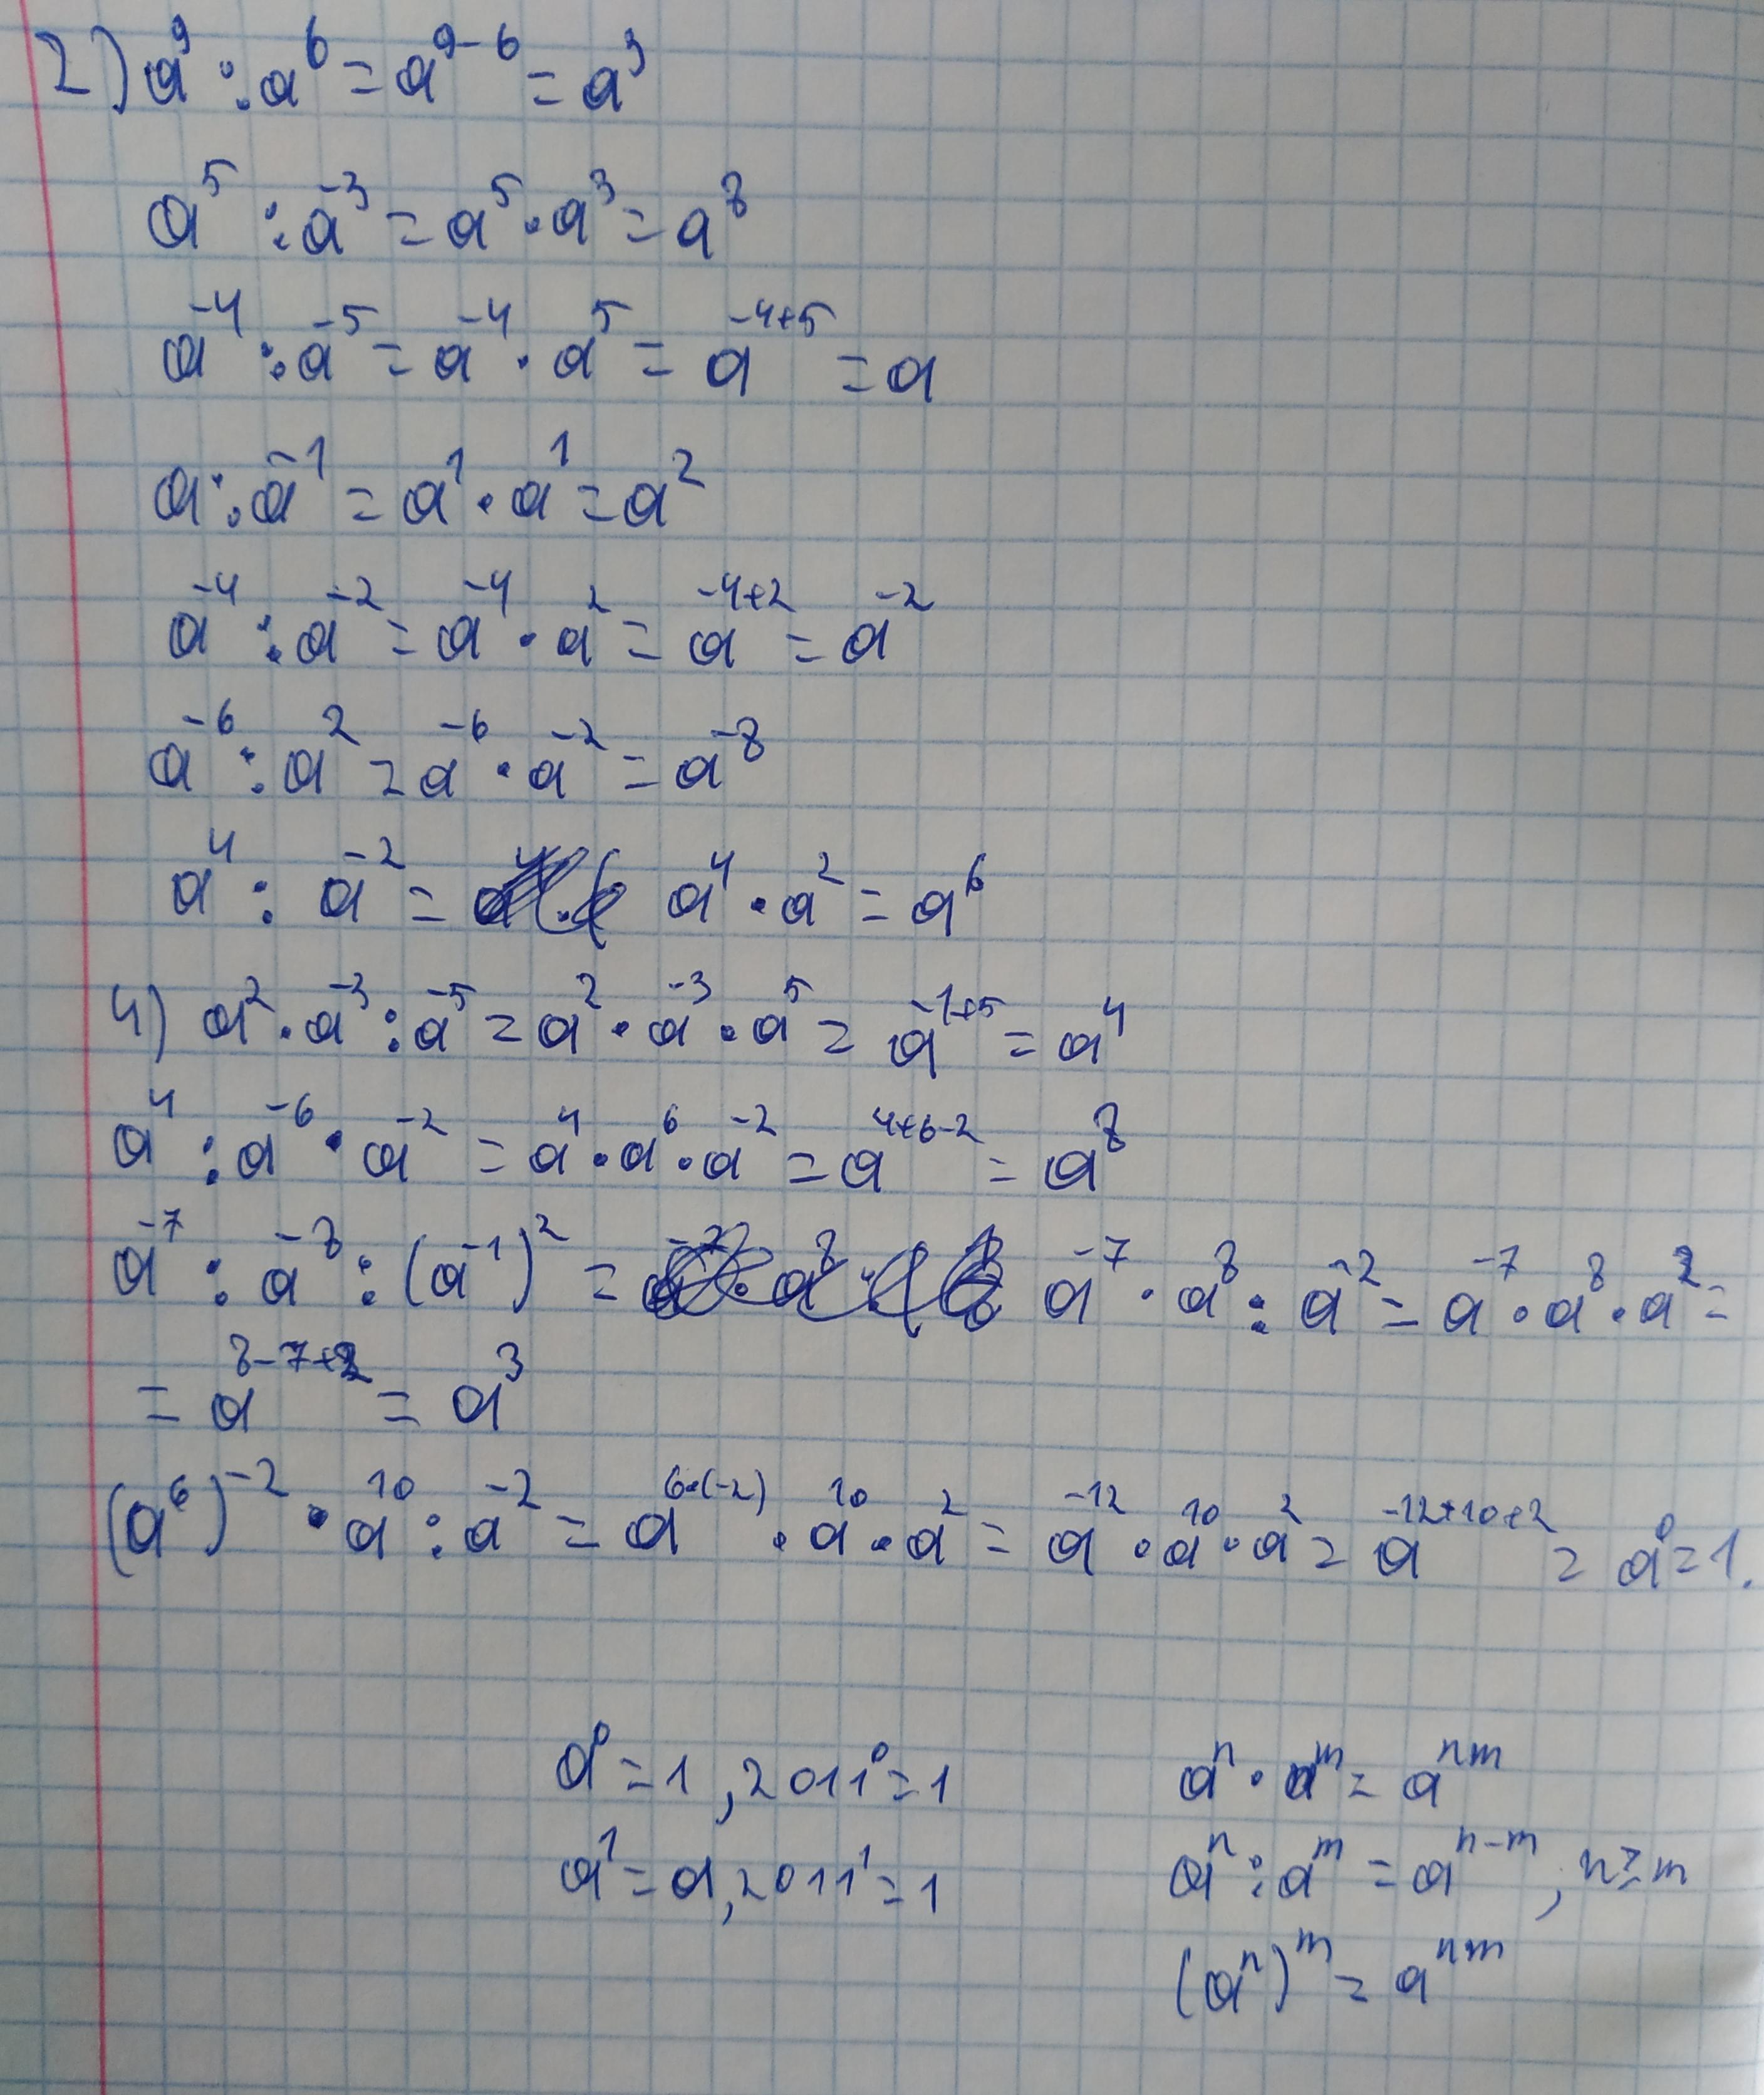 2) a⁹ : a⁶ = a⁹⁻⁶ = a³
a⁵ : a⁻³ = a⁵ · a³ = a⁸
a⁻⁴ : a⁻⁵ = a⁻⁴ · a⁵ = a⁻⁴⁺⁵ = a
a : a⁻¹ = a¹ · a¹ = a²
a⁻⁴ : a⁻² = a⁻⁴ · a² = a⁻⁴⁺² = a⁻²
a⁻⁶ : a² = a⁻⁶ · a⁻² = a⁻⁸
a⁴ : a⁻² = a⁴ · a² = a⁶
4) a² · a⁻³ : a⁻⁵ = a² · a⁻³ · a⁵ = a⁻¹⁺⁵ = a⁴
a⁴ : a⁻⁶ · a⁻² = a⁴ · a⁶ · a⁻² = a⁴⁺⁶⁻² = a⁸
a⁻⁷ : a⁻⁸ : (a⁻¹)² = a⁻⁷ · a⁸ : a⁻² = a⁻⁷ · a⁸ · a² =
= a⁸⁻⁷⁺² = a³
(a⁶)⁻² · a¹⁰ : a⁻² = a⁶·⁽⁻²⁾ · a¹⁰ · a² = a⁻¹² · a¹⁰ · a² = a⁻¹²⁺¹⁰⁺² = a⁰ = 1.
a⁰ = 1, 2011⁰ = 1
a¹ = a, 2011¹ = 1
aⁿ · aᵐ = aⁿᵐ
aⁿ : aᵐ = aⁿ⁻ᵐ, n ≥ m
(aⁿ)ᵐ = aⁿᵐ